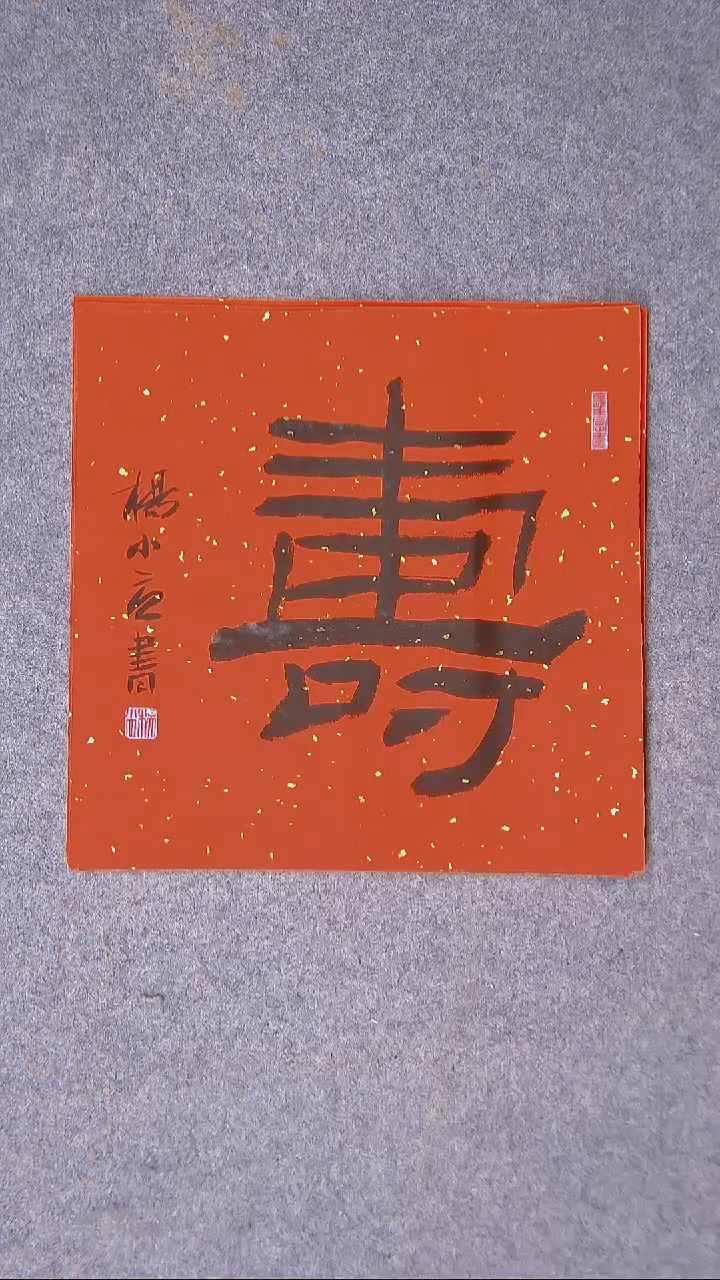 壽
楊小㐅書